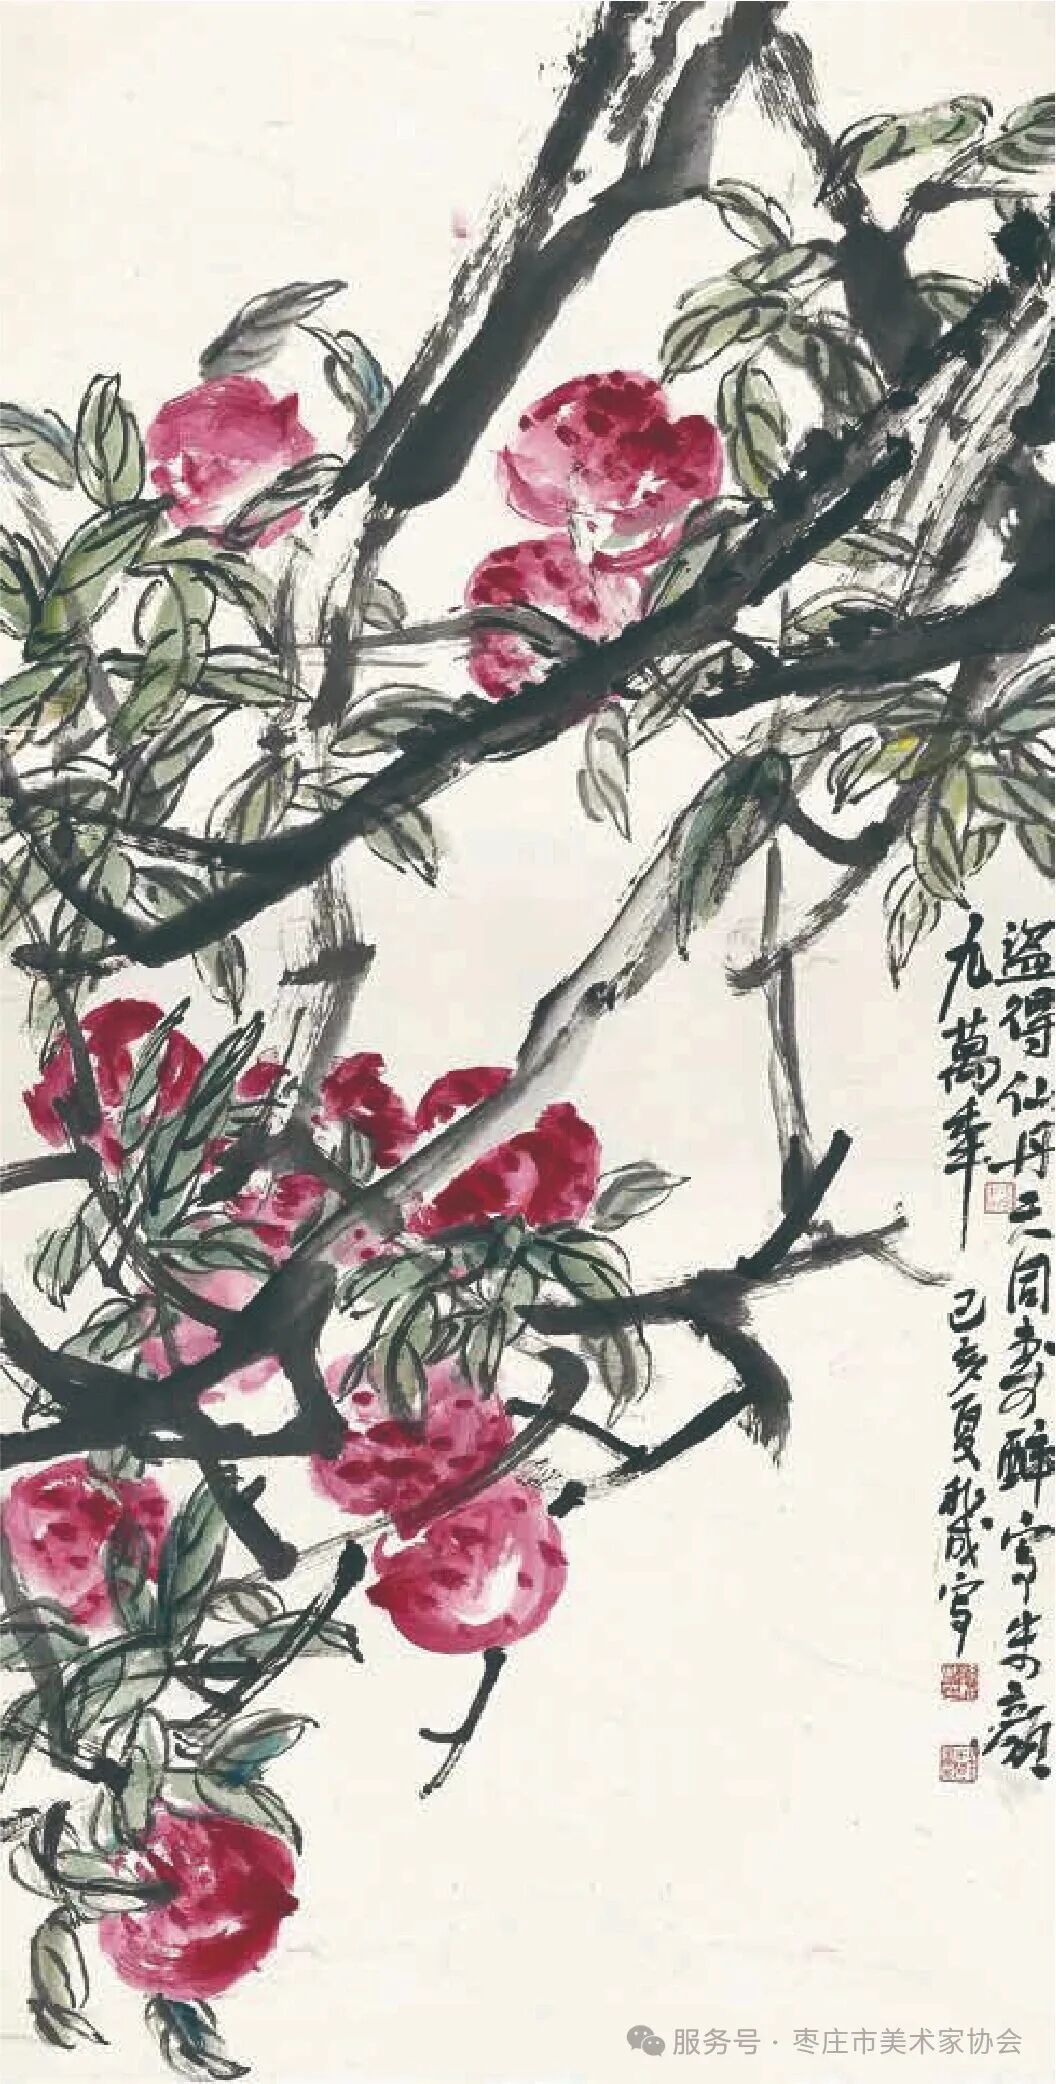 盗得仙丹天同寿醉写朱颜
九萬年
己亥夏秋成写
服务号 · 枣庄市美术家协会